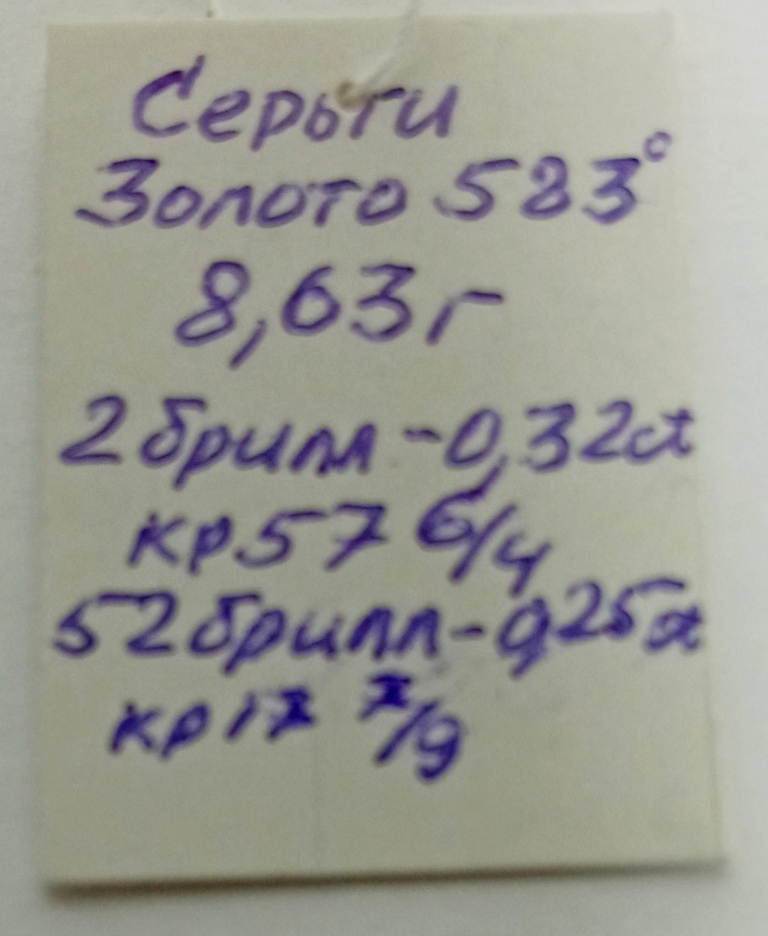 Серьги
Золото 583°
8,63 г
2 брилл - 0,32 ct
кр 57 6/4
52 брилл - 0,25 ct
кр 17 7/9